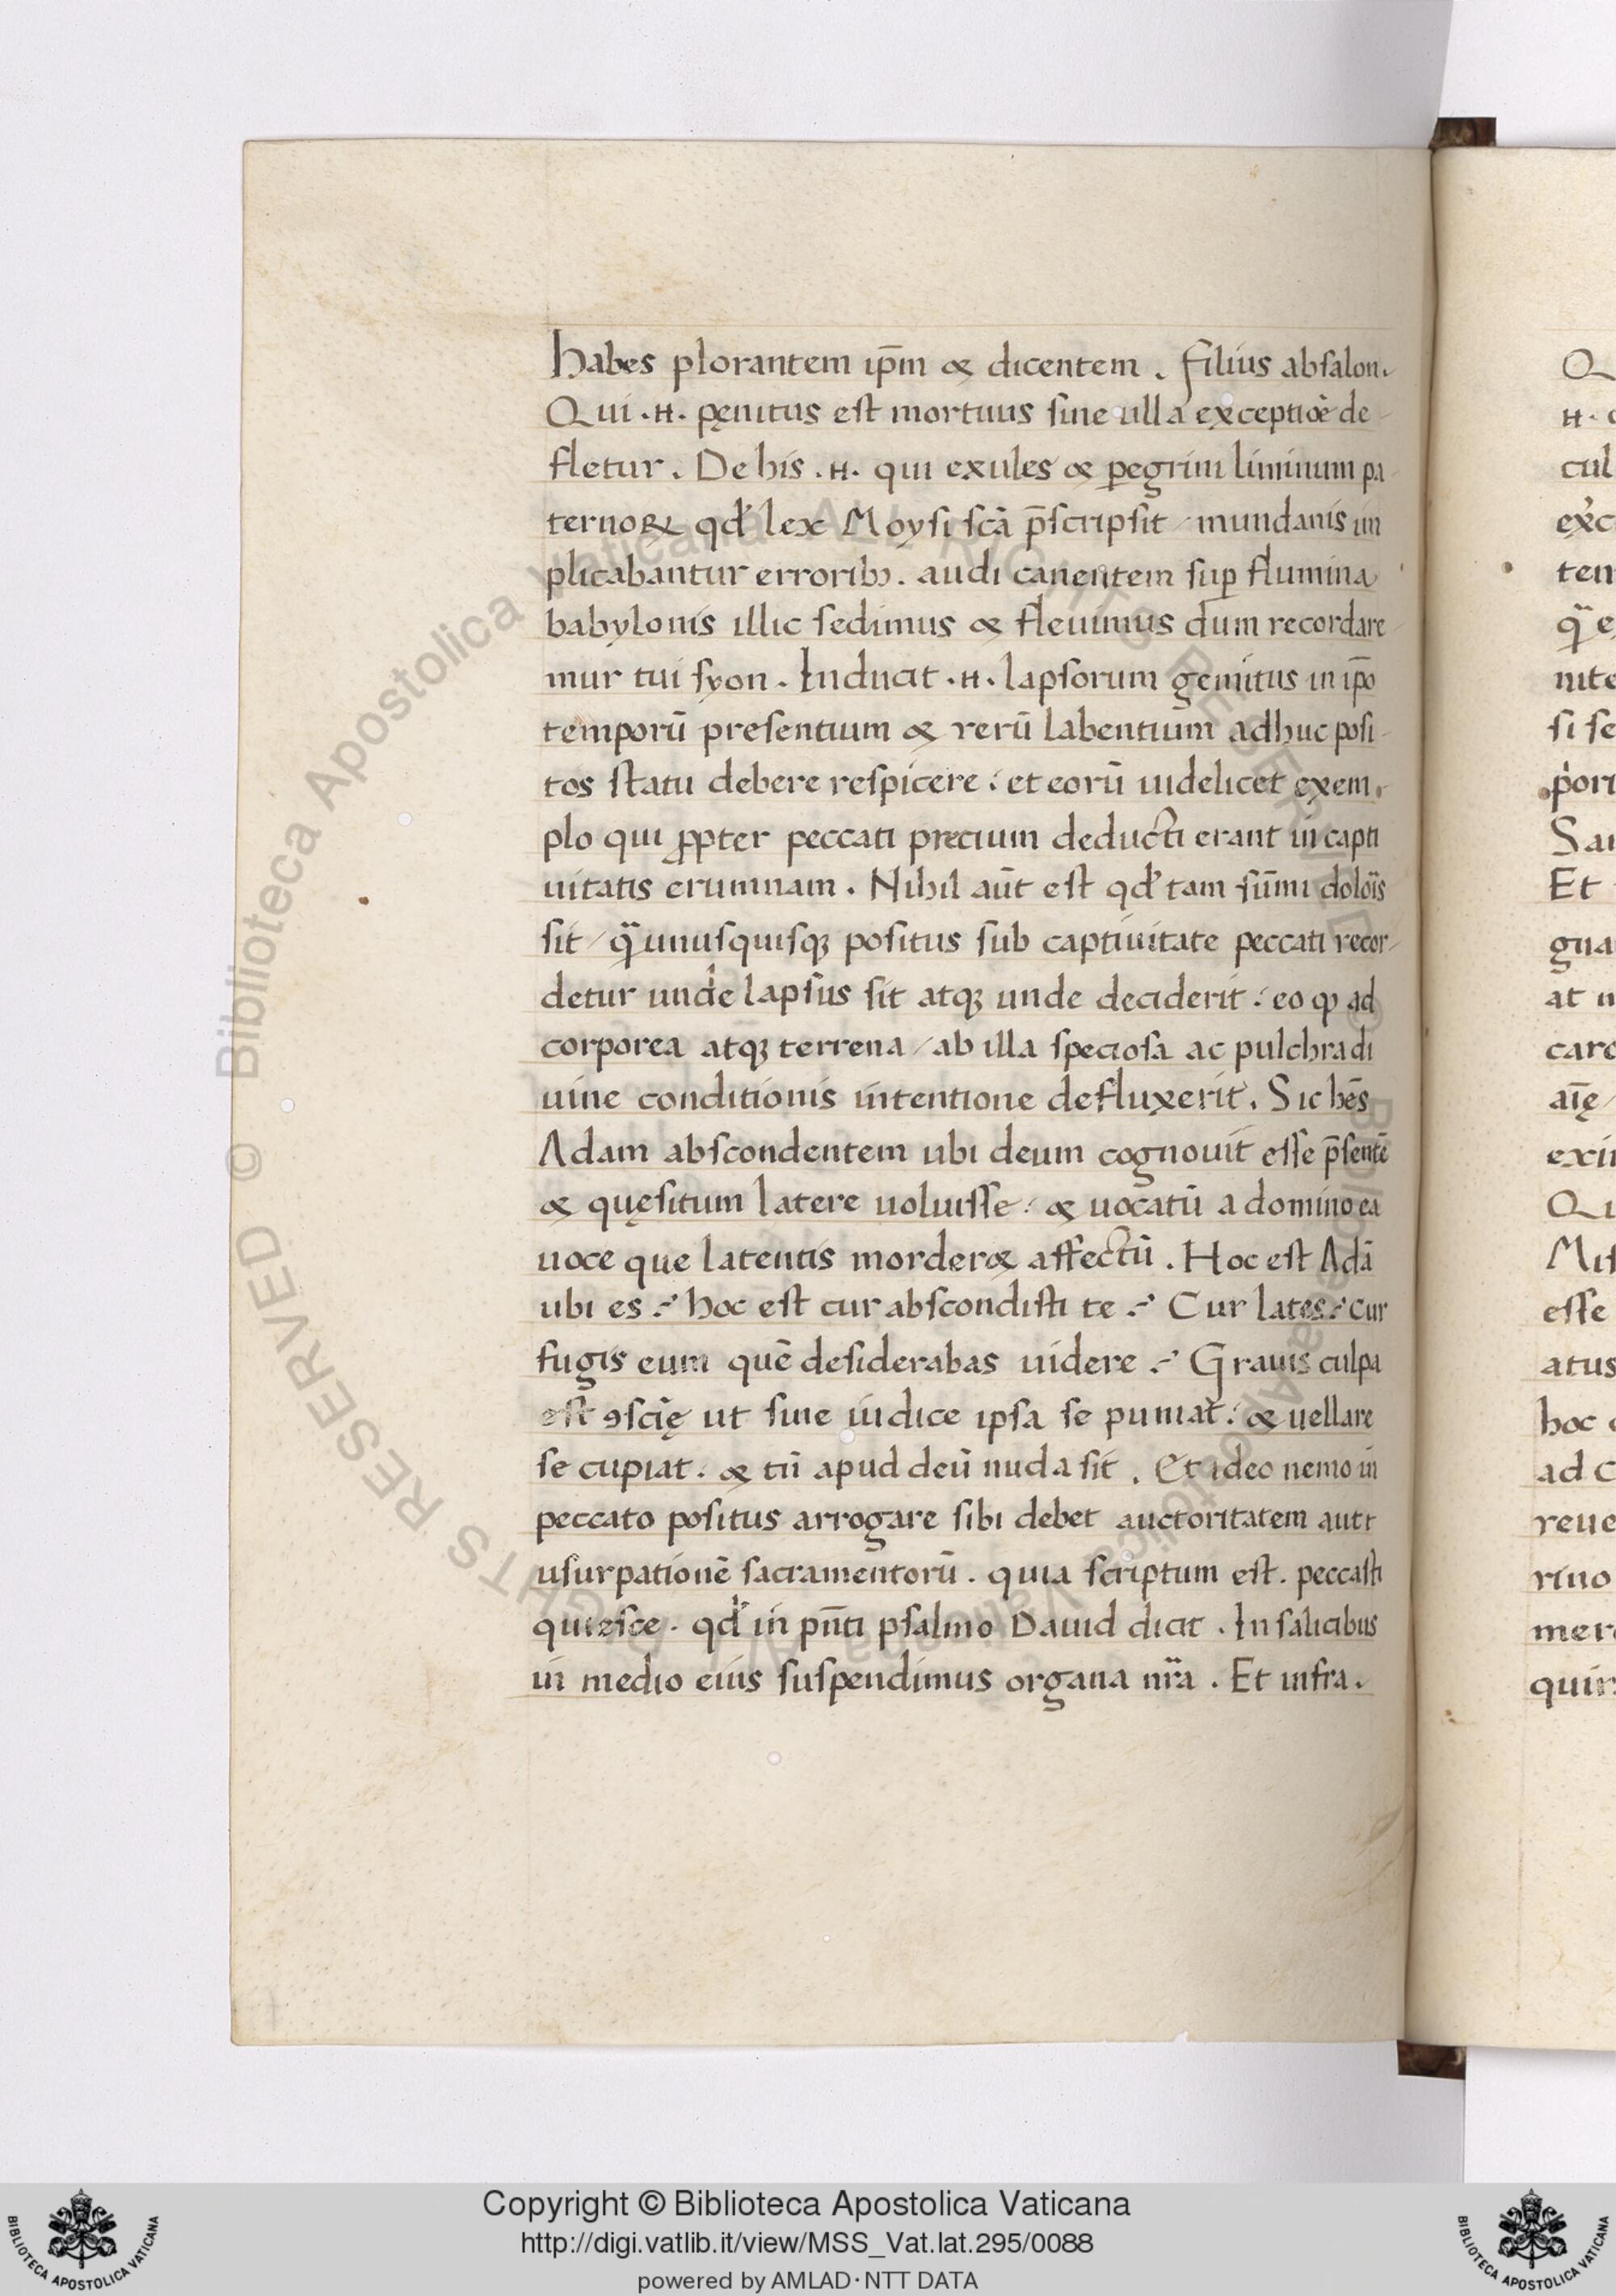 habes plorantem ip̄m & dicentem . filius absalon.
Qui .H. pęnitus est mortuus sine ulla exceptiōe de
fletur . De his .H. qui exules & peregrini liminum pa
ternoꝝ qd' lex Moysi scā p̄scripsit / mundanis im
plicabantur erroribꝫ . audi canentem suꝑ flumina
babylonis illic sedimus & fleuimus dum recordare
mur tui syon . Inducit .H. lapsorum gemitus in ip̄o
temporū presentium & rerū labentium adhuc posi
tos statu debere respicere : et eorū uidelicet exem
plo qui ꝓpter peccati precium deducti erant in capti
uitatis erumnam . Nihil aūt est qd' tam sūmi doloīs
sit / qͣ unusquisqꝫ positus sub captiuitate peccati recor
detur unde lapsus sit atqꝫ unde deciderit : eo ꝙ ad
corporea atqꝫ terrena / ab illa speciosa ac pulchra di
uine conditionis intentione defluxerit . Sic hēs
Adam abscondentem ubi deum cognouit esse p̄sentē
& quęsitum latere uoluisse : & uocatū a domino ea
uoce que latentis morderet affectū . Hoc est Adā
ubi es ? hoc est cur abscondisti te ? Cur lates ? cur
fugis eum quē desiderabas uidere ? Grauis culpa
est ꝯscīę ut sine iudice ipsa se puniat : & uellare
se cupiat . & tū apud deū nuda sit . Et ideo nemo in
peccato positus arrogare sibi debet auctoritatem aut
usurpationē sacramentorū . quia scriptum est . peccasti
quiesce . qd' in pn̄ti psalmo Dauid dicit . In salicibus
in medio eius suspendimus organa nr̄a . Et infra .
Q
H.
cul
exc
ten
qͣ e
nite
si se
pori
Sa
Et
gna
at
carc
aīę
exi
Qu
Mis
esse
atus
hoc
ad c
reue
rino
mer
quir
© Biblioteca Apostolica Vaticana ALL RIGHTS RESERVED
Copyright © Biblioteca Apostolica Vaticana
http://digi.vatlib.it/view/MSS_Vat.lat.295/0088
powered by AMLAD·NTT DATA
BIBLIOTECA APOSTOLICA VATICANA
BIBLIOTECA APOSTOLICA VATICANA